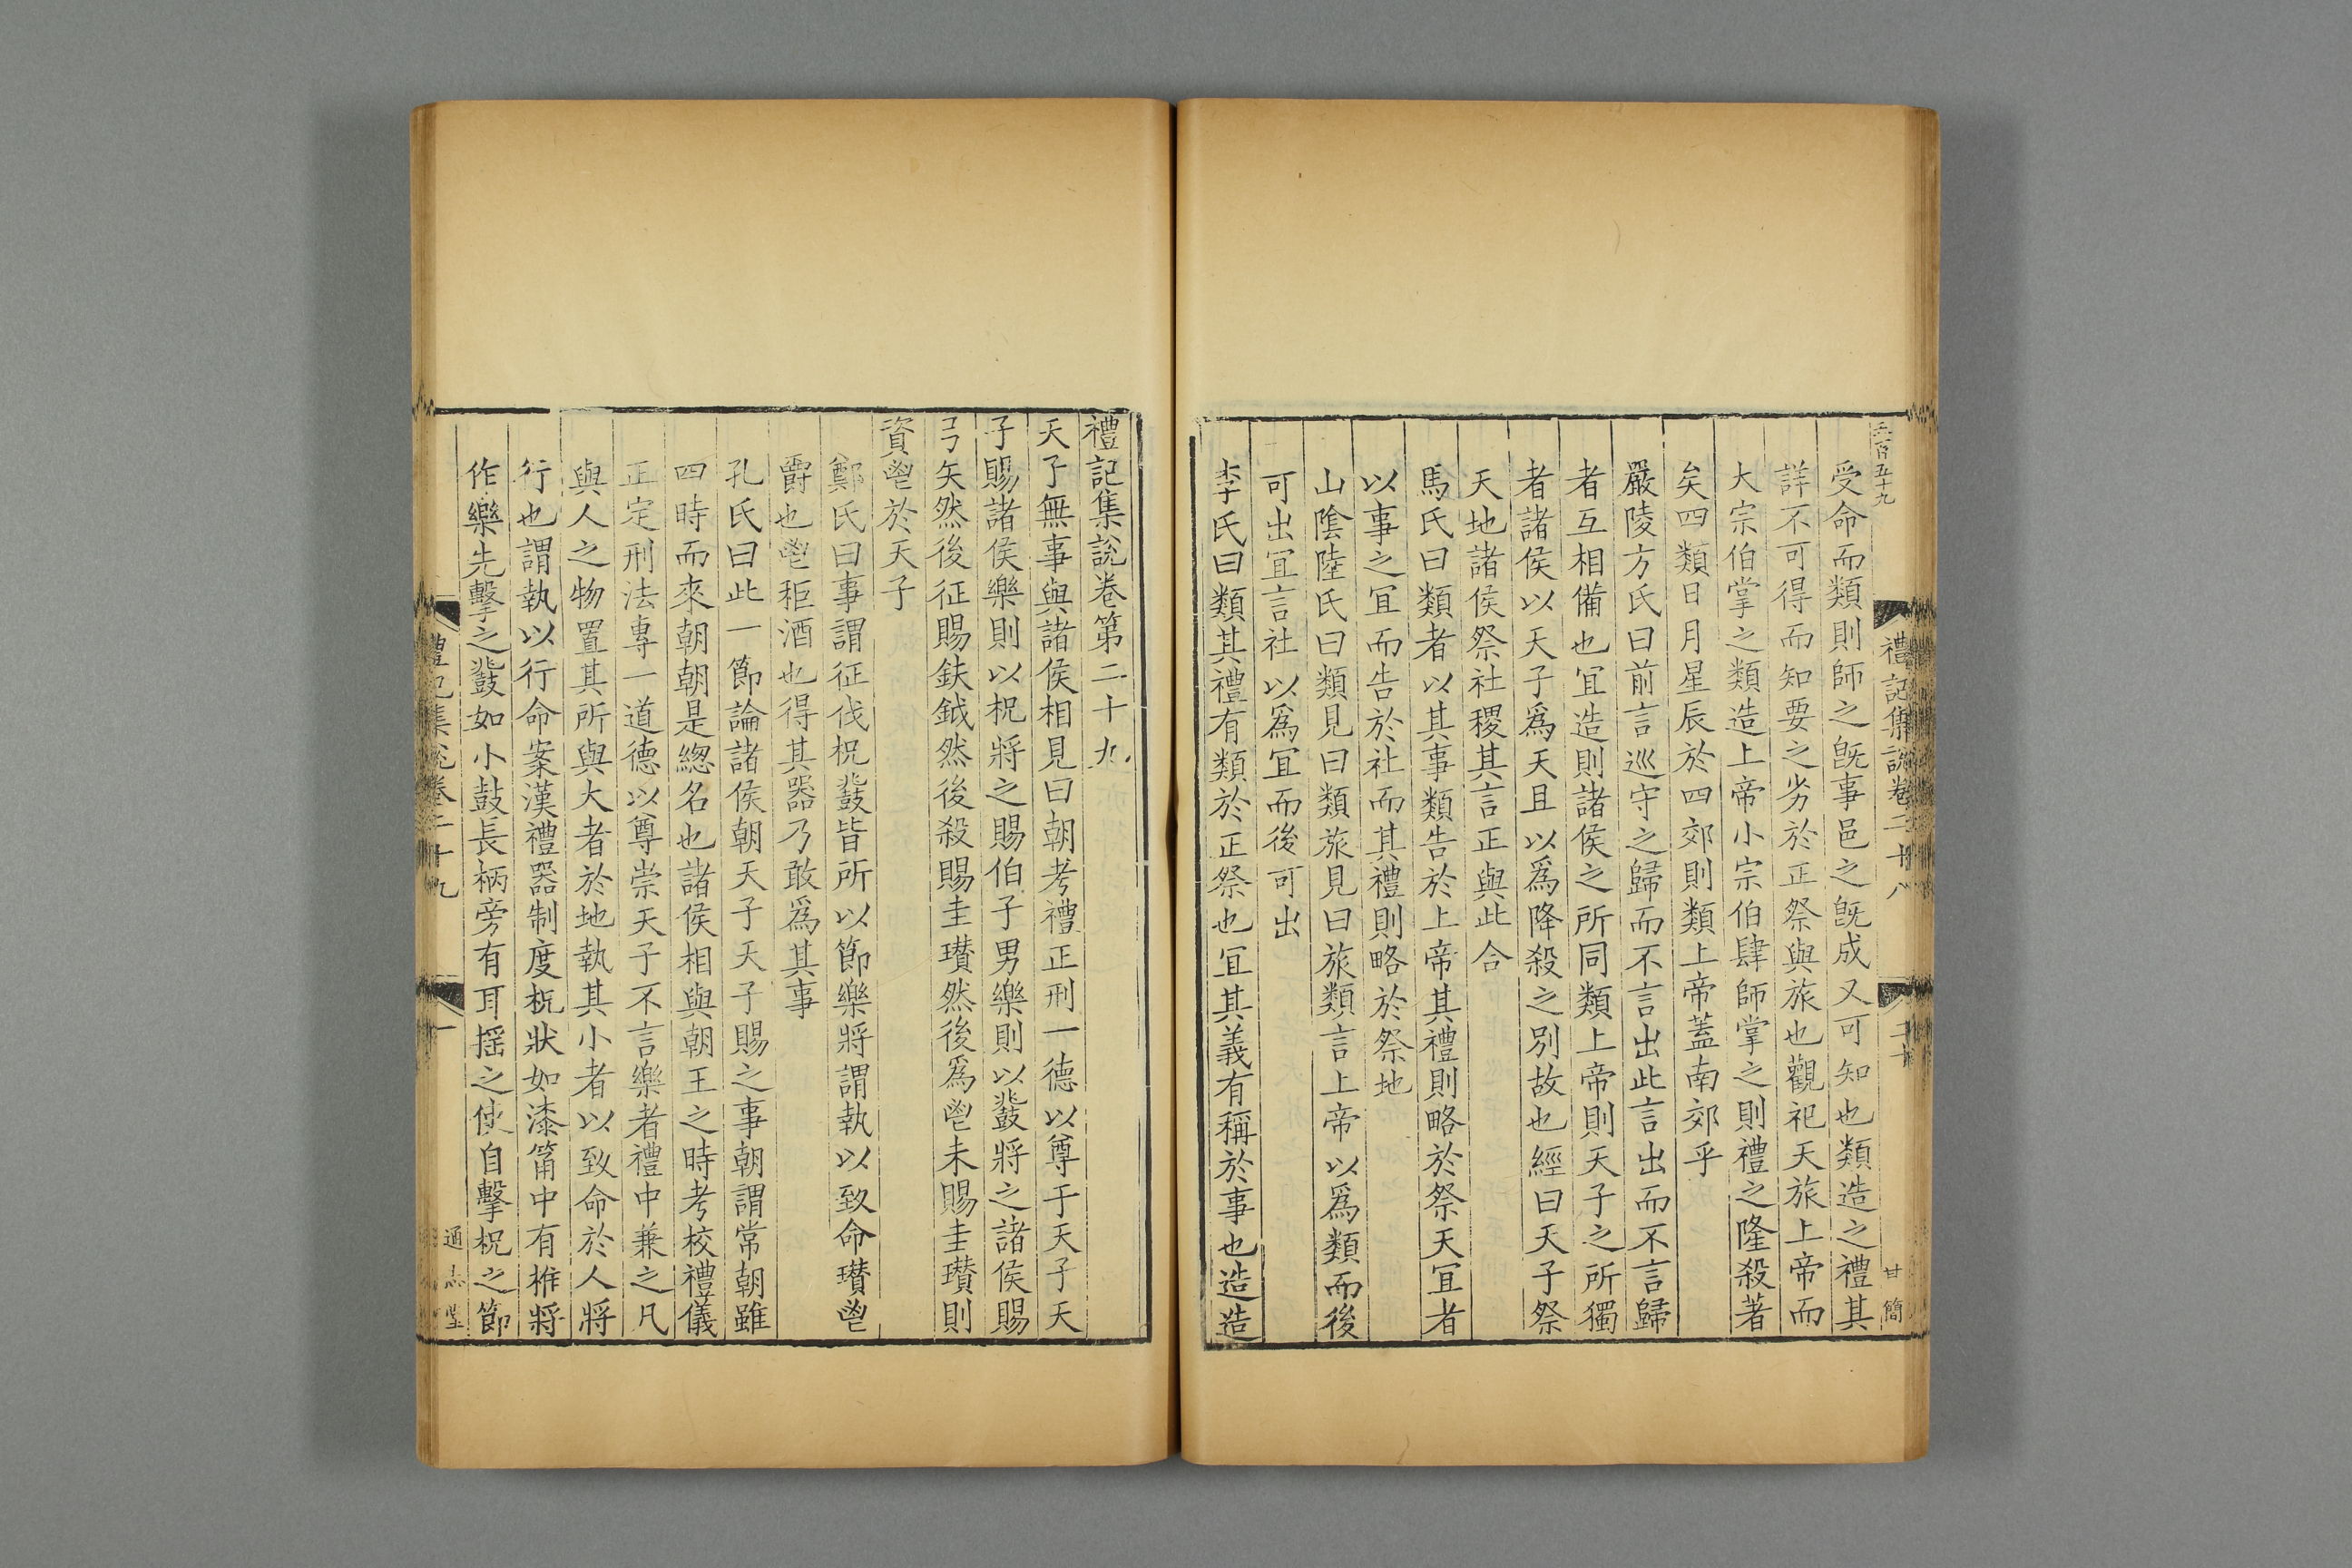 受命而類則師之旣事邑之旣成又可知也類造之禮其
詳不可得而知要之劣於正祭與旅也觀祀天旅上帝而
大宗伯掌之類造上帝小宗伯肆師掌之則禮之隆殺著
矣四類日月星辰於四郊則類上帝蓋南郊乎
嚴陵方氏曰前言巡守之歸而不言出此言出而不言歸
者互相備也宜造則諸侯之所同類上帝則天子之所獨
者諸侯以天子爲天且以爲降殺之別故也經曰天子祭
天地諸侯祭社稷其言正與此合
馬氏曰類者以其事類告於上帝其禮則略於祭天宜者
以事之宜而告於社而其禮則略於祭地
山陰陸氏曰類見曰類旅見曰旅類言上帝以爲類而後
可出宜言社以爲宜而後可出
李氏曰類其禮有類於正祭也宜其義有稱於事也造造
禮記集說卷二十八
二十
甘 簡
禮記集說卷第二十九
天子無事與諸侯相見曰朝考禮正刑一德以尊于天子天
子賜諸侯樂則以柷將之賜伯子男樂則以鼗將之諸侯賜
弓矢然後征賜鈇鉞然後殺賜圭瓚然後爲鬯未賜圭瓚則
資鬯於天子
鄭氏曰事謂征伐柷鼗皆所以節樂將謂執以致命瓚鬯
爵也鬯秬酒也得其器乃敢爲其事
孔氏曰此一節論諸侯朝天子天子賜之事朝謂常朝雖
四時而來朝朝是緫名也諸侯相與朝王之時考校禮儀
正定刑法專一道德以尊崇天子不言樂者禮中兼之凡
與人之物置其所與大者於地執其小者以致命於人將
行也謂執以行命案漢禮器制度柷狀如漆筩中有椎將
作樂先擊之鼗如小鼓長柄旁有耳摇之使自擊柷之節
禮記集說卷二十九
一
通志堂